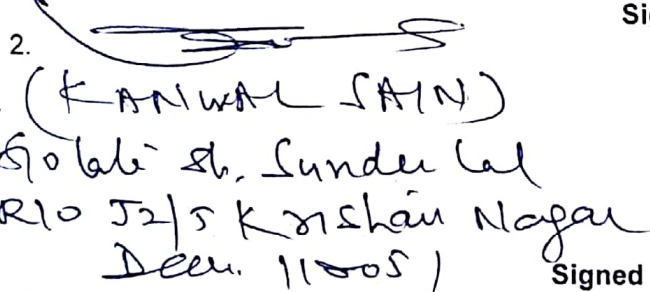 Si
2.
(KANWAL SAIN)
S/o late Sh. Sunder Lal
R/o J2/5 Krishan Nagar
Delhi. 110051
Signed